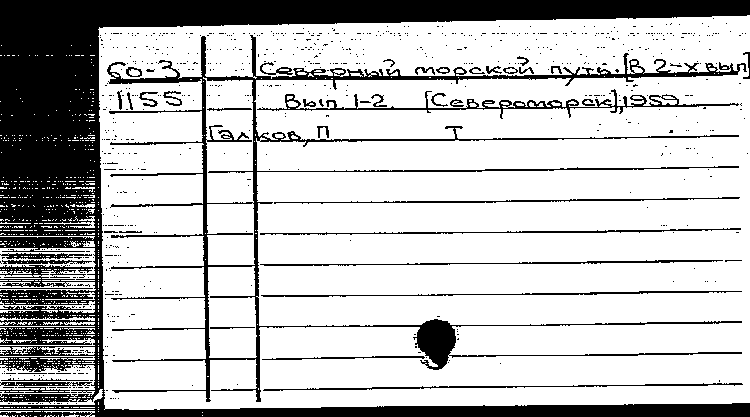 60-3 Северный морской путь. [В 2-х вып]
1155 Вып. 1-2. [Североморск], 1959
Галков, П Т